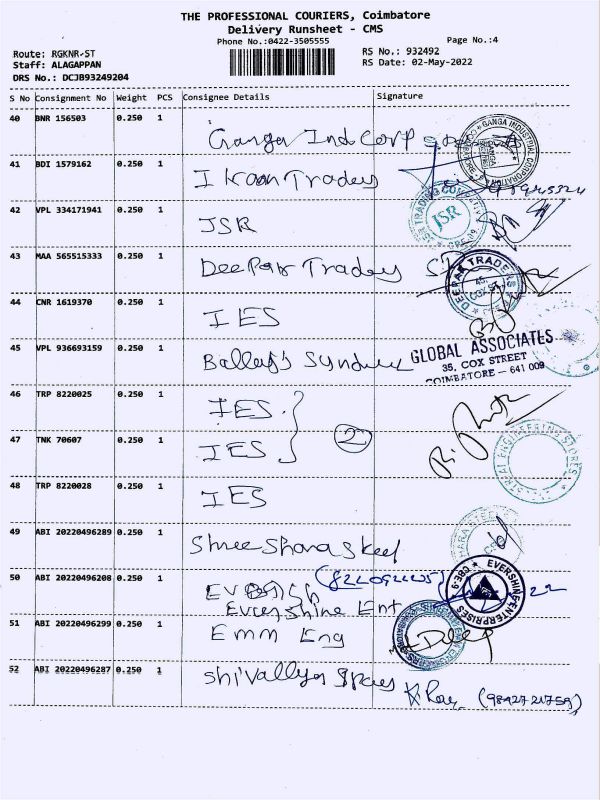 THE PROFESSIONAL COURIERS, Coimbatore
Delivery Runsheet - CMS
Phone No.:0422-3505555
Page No.:4
Route: RGKNR-ST
RS No.: 932492
Staff: ALAGAPPAN
RS Date: 02-May-2022
DRS No.: DCJB93249204
S No Consignment No Weight PCS Consignee Details Signature
40 BNR 156503 0.250 1 Ganga Ind Corp
GANGA INDUSTRIAL CORPORATION
41 BDI 1579162 0.250 1 I Kaan Traders
42 VPL 334171941 0.250 1 JSR
JSR TRADING
JSR
43 MAA 565515333 0.250 1 Deepak Traders
DEEPAK TRADERS
45, COX ST
44 CNR 1619370 0.250 1 IES
45 VPL 936693159 0.250 1
GLOBAL ASSOCIATES
35, COX STREET
COIMBATORE - 641 009
46 TRP 8220025 0.250 1 IES
2
47 TNK 70607 0.250 1 IES
ENGINEERING STORES
48 TRP 8220028 0.250 1 IES
49 ABI 20220496289 0.250 1 Shree
50 ABI 20220496208 0.250 1
Evershine Ent
EVERSHINE ENTERPRISES CBE-9
51 ABI 20220496299 0.250 1 Emm Eng
52 ABI 20220496287 0.250 1
(9842721759)